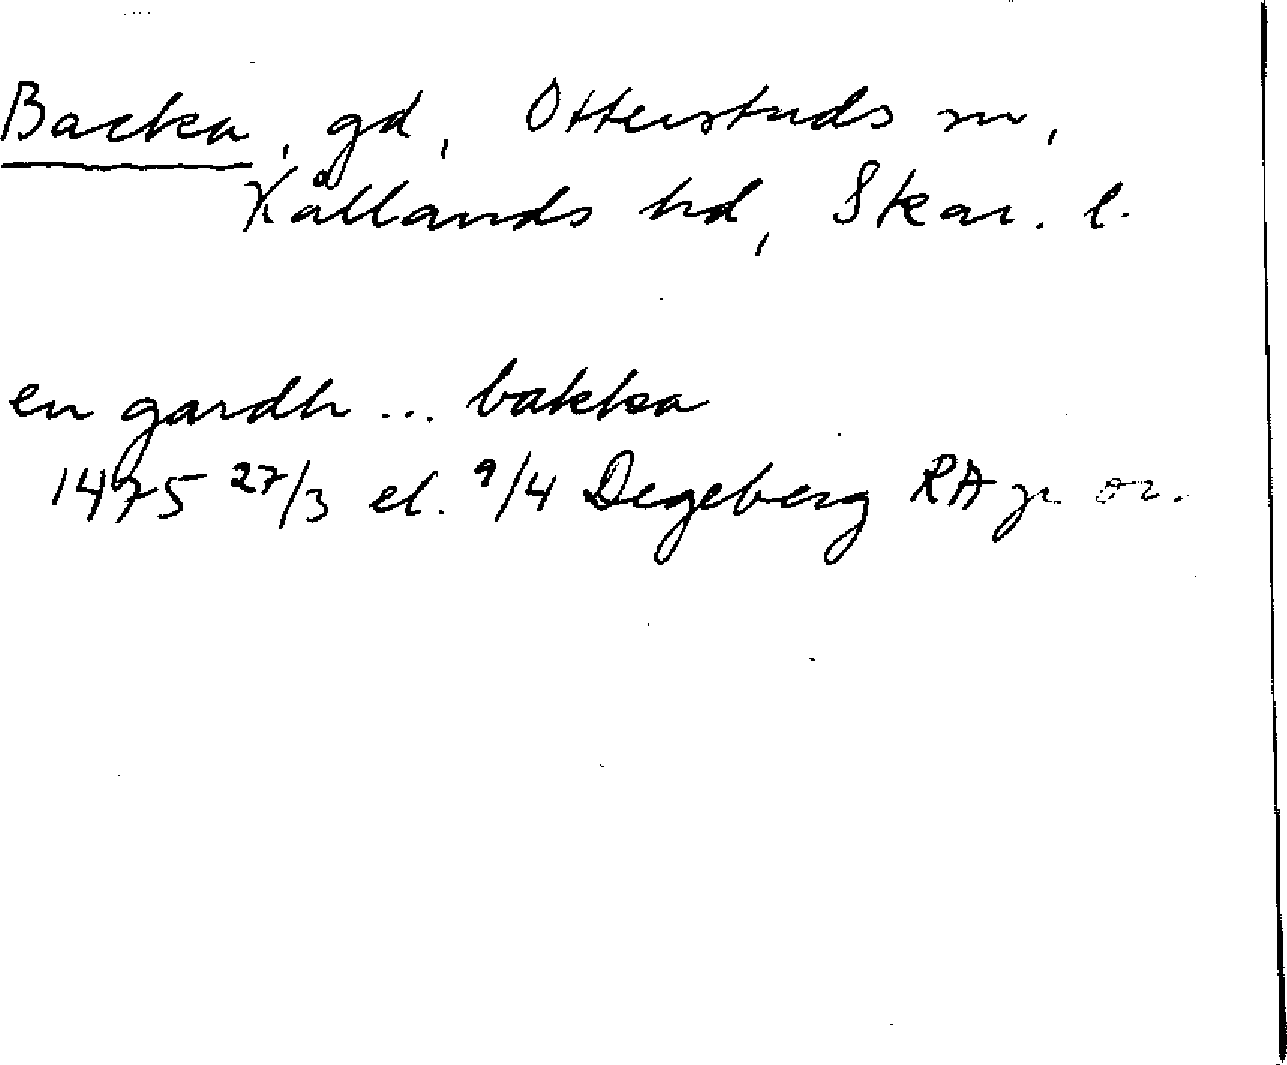 Backa, gd, Otterstads sn,
Kållands hd, Skar. l.
en gardh ... bakka
1475 27/3 el. 9/4 Degeberg RA p or.